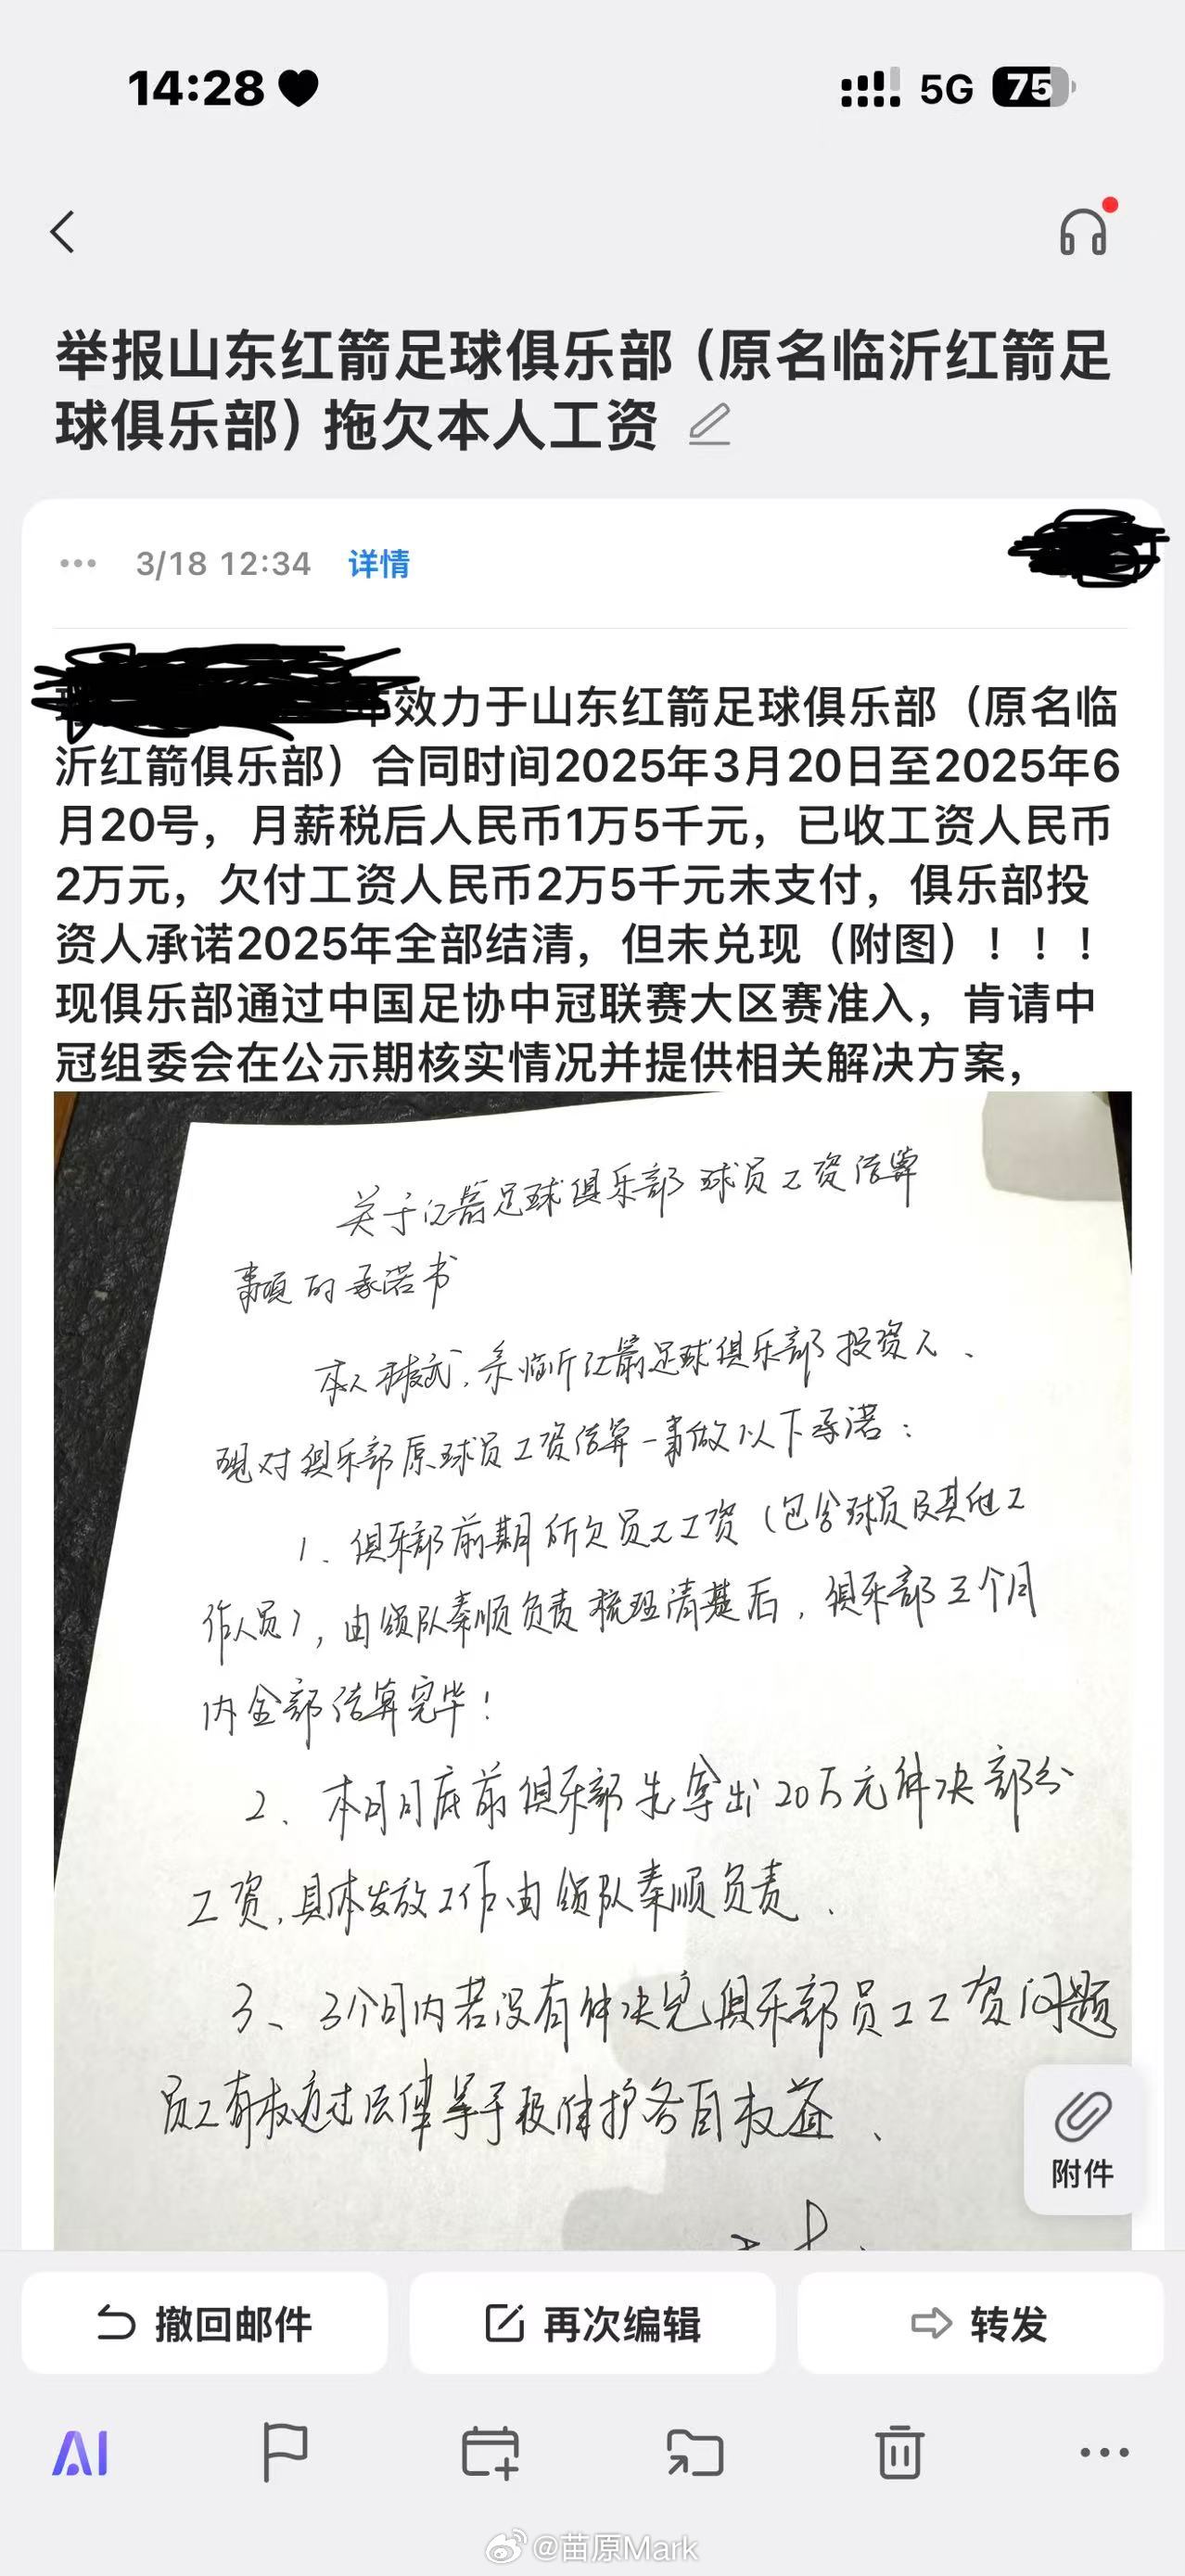 14:28
5G
75
举报山东红箭足球俱乐部（原名临沂红箭足
球俱乐部）拖欠本人工资
3/18 12:34 详情
效力于山东红箭足球俱乐部（原名临
沂红箭俱乐部）合同时间2025年3月20日至2025年6
月20号，月薪税后人民币1万5千元，已收工资人民币
2万元，欠付工资人民币2万5千元未支付，俱乐部投
资人承诺2025年全部结清，但未兑现（附图）！！！
现俱乐部通过中国足协中冠联赛大区赛准入，肯请中
冠组委会在公示期核实情况并提供相关解决方案，
关于红箭足球俱乐部球员工资结算
事项的承诺书
本人，系临沂红箭足球俱乐部投资人、
现对俱乐部原球员工资结算一事做以下承诺：
1、俱乐部前期所欠员工工资（包含球员及其他工
作人员），由领队秦顺负责梳理清楚后，俱乐部三个月
内全部结算完毕！
2、本月月底前俱乐部先拿出20万元解决部分
工资，具体发放工作由领队秦顺负责、
3、3个月内若没有解决完俱乐部员工工资问题
员工有权通过法律等手段维护各自权益、
附件
撤回邮件
再次编辑
转发
AI
@苗原Mark